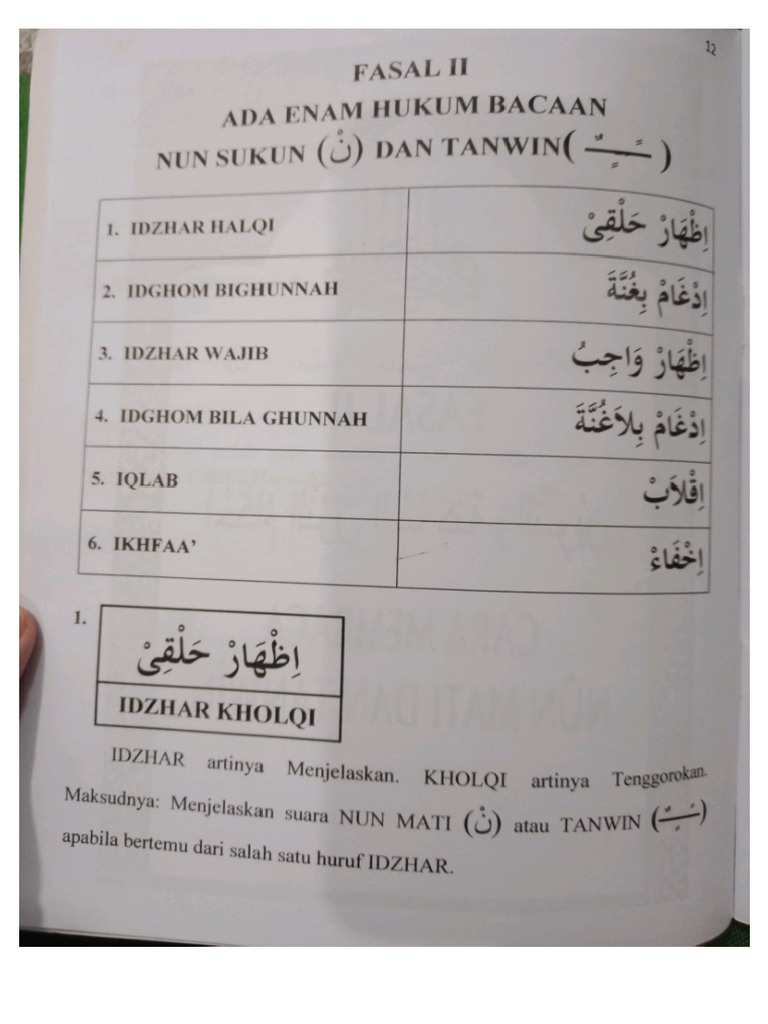 12
FASAL II
ADA ENAM HUKUM BACAAN
NUN SUKUN (نْ) DAN TANWIN( ـًـٍـٌ )
1. IDZHAR HALQI اِظْهَارْ حَلْقِىْ
2. IDGHOM BIGHUNNAH اِدْغَامْ بِغُنَّةَ
3. IDZHAR WAJIB اِظْهَارْ وَاجِبُ
4. IDGHOM BILA GHUNNAH اِدْغَامْ بِلاَغُنَّةَ
5. IQLAB اِقْلاَبْ
6. IKHFAA’ اِخْفَاءْ
1.
اِظْهَارْ حَلْقِىْ
IDZHAR KHOLQI
IDZHAR artinya Menjelaskan. KHOLQI artinya Tenggorokan.
Maksudnya: Menjelaskan suara NUN MATI (نْ) atau TANWIN (ـًـٍـٌ)
apabila bertemu dari salah satu huruf IDZHAR.